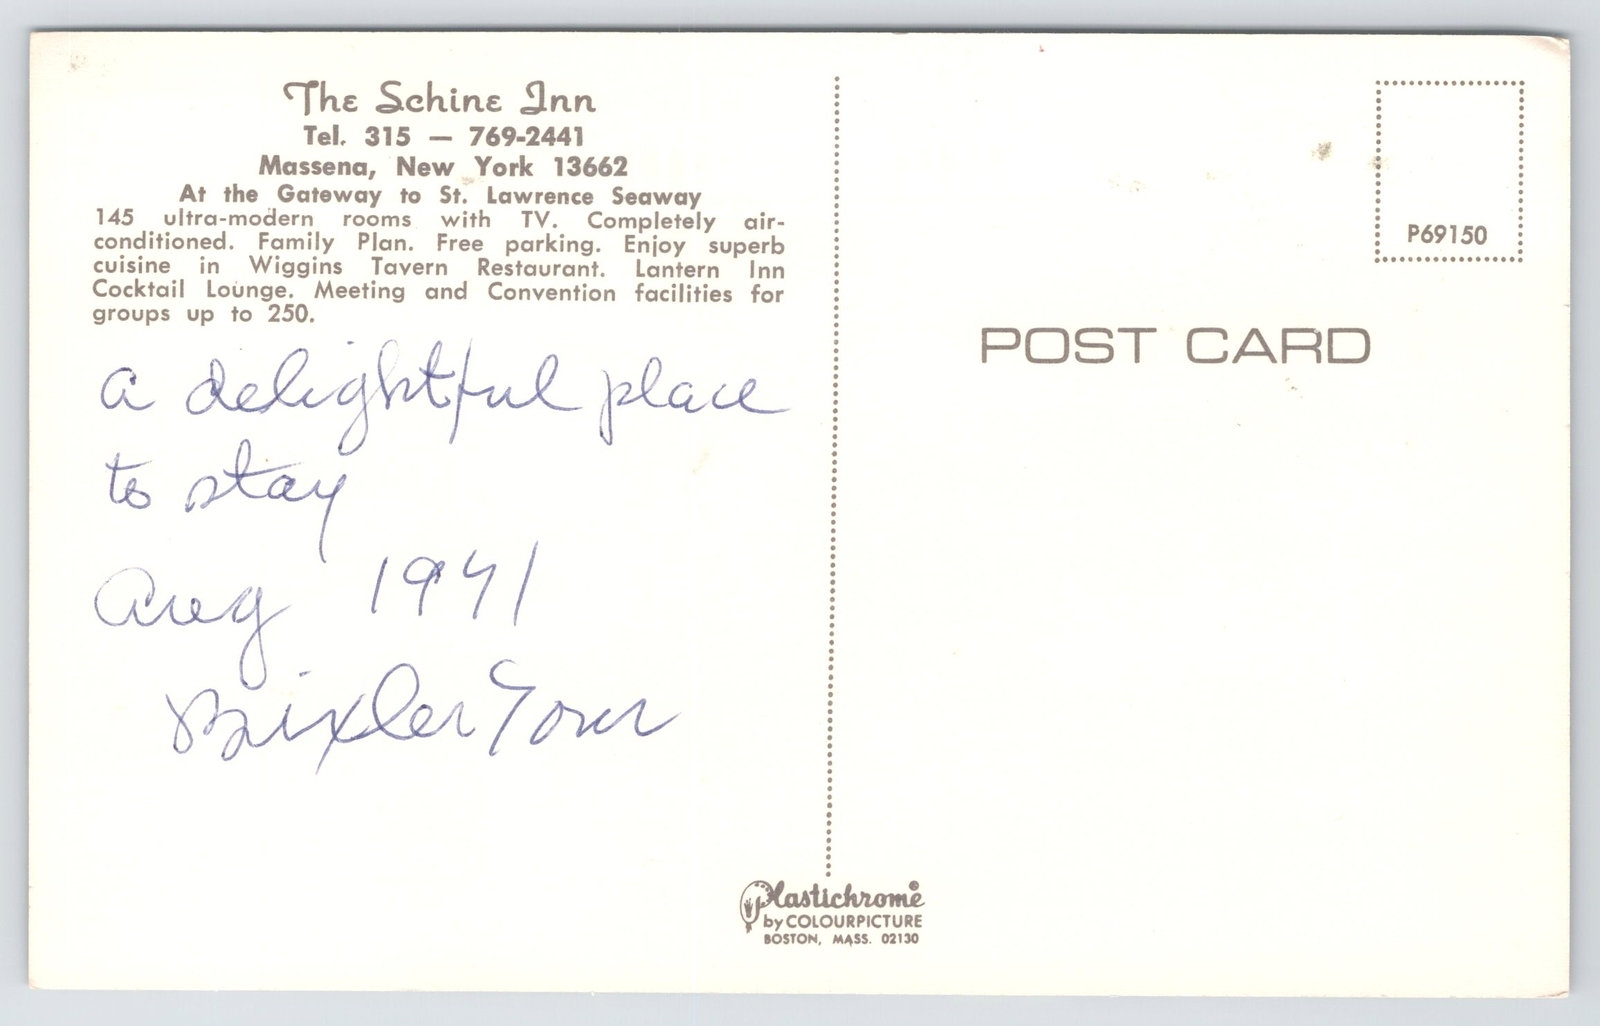 The Schine Inn
Tel. 315 — 769-2441
Massena, New York 13662
At the Gateway to St. Lawrence Seaway
145 ultra-modern rooms with TV. Completely air-
conditioned. Family Plan. Free parking. Enjoy superb
cuisine in Wiggins Tavern Restaurant. Lantern Inn
Cocktail Lounge. Meeting and Convention facilities for
groups up to 250.
a delightful place
to stay
Aug 1971
Bixler Tour
P69150
POST CARD
Plastichrome®
by COLOURPICTURE
BOSTON, MASS. 02130